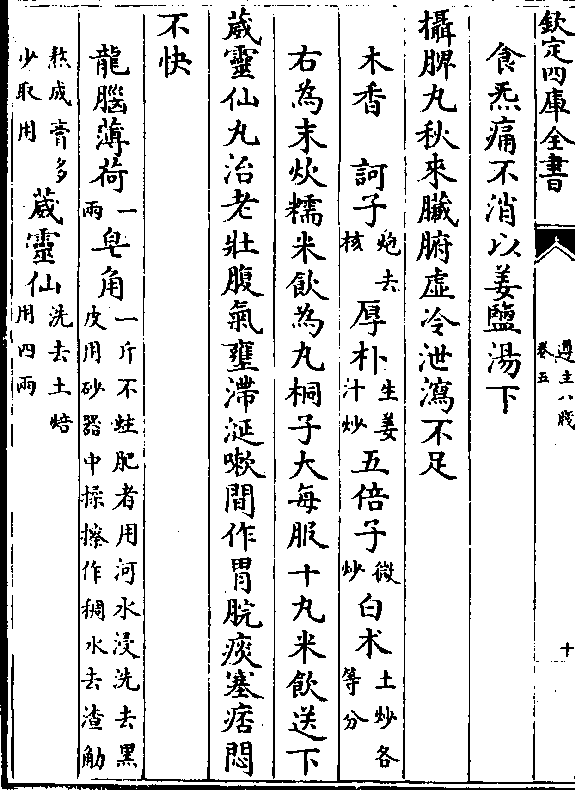 欽定四庫全書
遵生八牋
卷五
十
食炁痛不消以姜鹽湯下
攝脾丸秋來臟腑虛冷泄瀉不足
木香　訶子炮去核　厚朴生姜汁炒　五倍子微炒　白朮土炒各等分
右為末炊糯米飲為丸桐子大每服十丸米飲送下
葳靈仙丸治老壯腹氣壅滯涎嗽間作胃脘痰塞痞悶
不快
龍腦薄荷一兩　皂角一斤不蛀肥者用河水浸洗去黑皮用砂器中揉擦作稠水去渣觔
熬成膏多少取用　葳靈仙洗去土焙用四兩